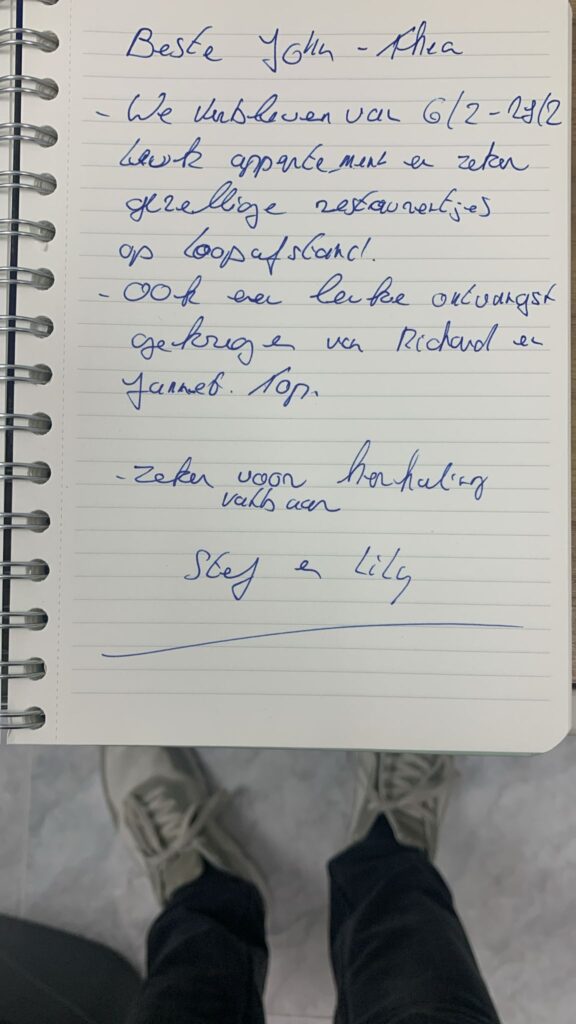 Beste John - Rhea
- We verbleven van 6/2 - 29/2
Leuk appartement en zeker
gezellige restaurantjes
op Loopafstand.
- OOk een leuke ontvangst
gekregen van Richard en
Jannet. Top.
- Zeker voor herhaling
vatbaar
Stef en Lily